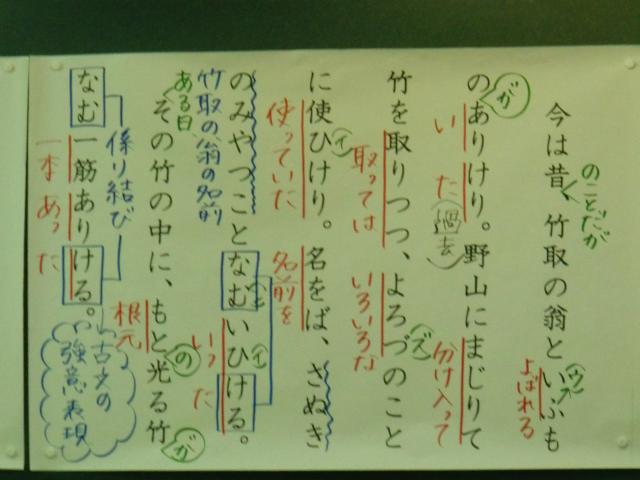 今は昔、竹取の翁といふも
のことだが
ウ
よばれる
のありけり。野山にまじりて
が
い
た(過去)
分け入って
竹を取りつつ、よろづのこと
取っては
いろいろな
ズ
に使ひけり。名をば、さぬき
イ
使っていた
名前を
のみやつことなむいひける。
竹取の翁の名前
イ
いった
その竹の中に、もと光る竹
ある日
根元
の
が
なむ一筋ありける。
係り結び
一本
あった
古文の
強意表現